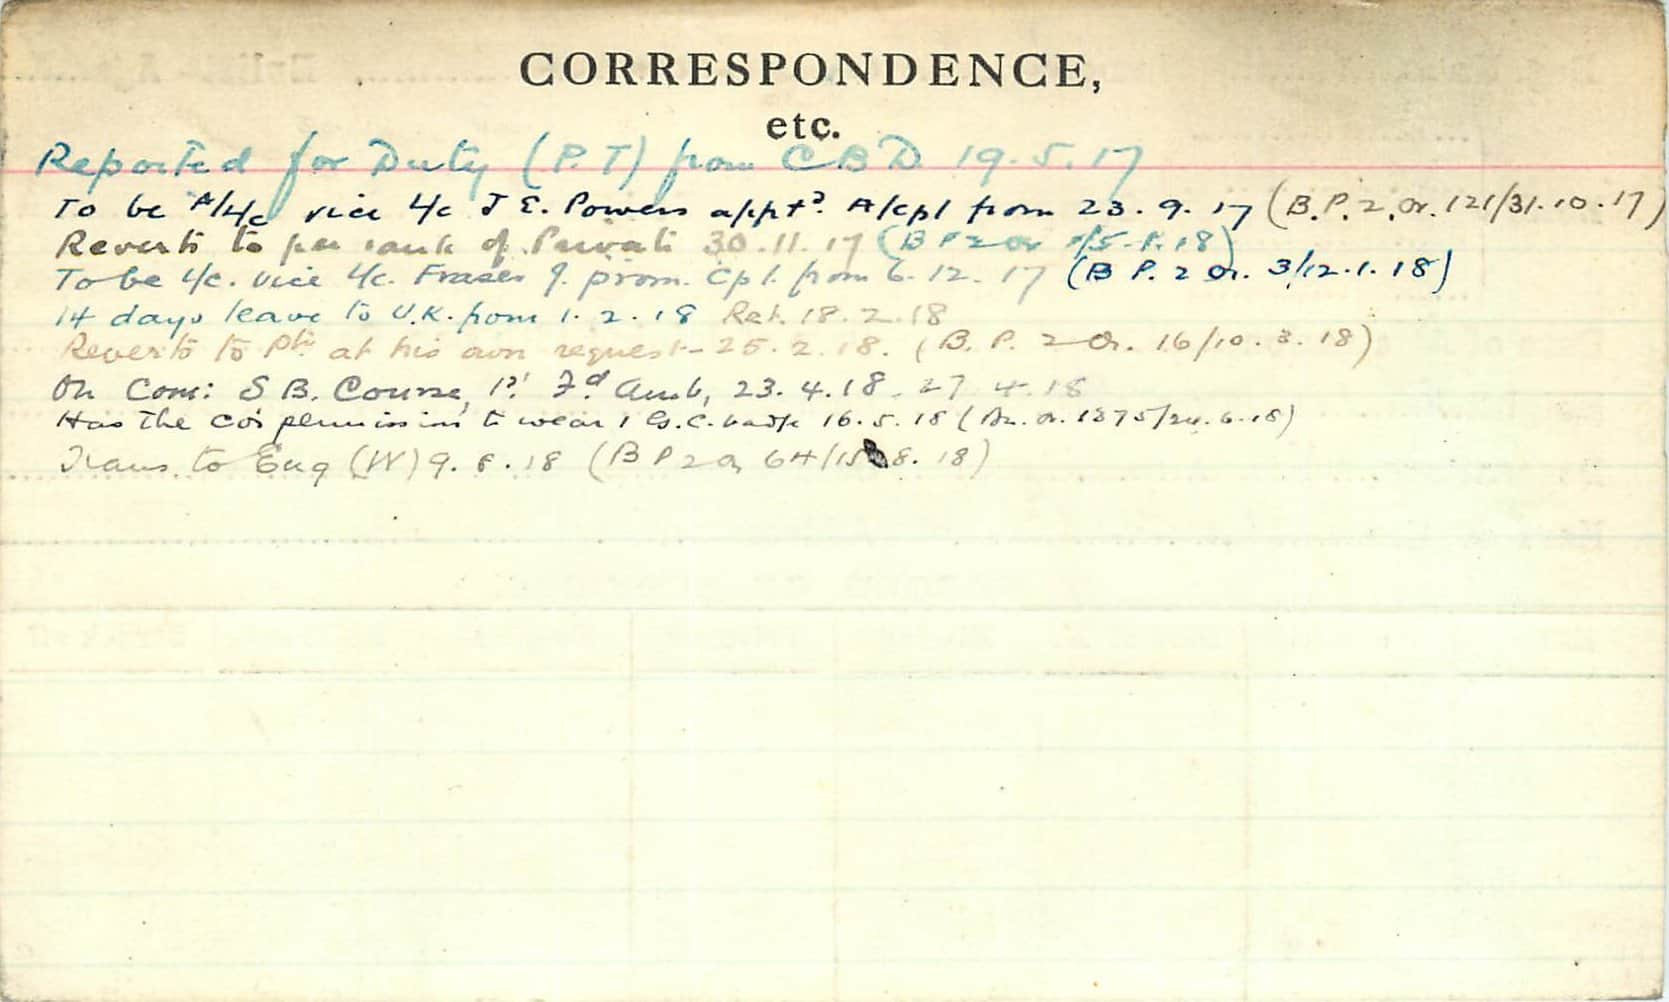 CORRESPONDENCE,
etc.
Reported for Duty (P.T) from CBD 19.5.17
To be A/L/c vice L/c J E. Powers appt? A/cpl from 23.9.17 (B.P.2.Or.121/31.10.17)
Reverts to per rank of Private 30.11.17 (B P 2 Or /5.1.18)
To be L/c. vice L/c. Fraser J. prom. Cpl. from 6.12.17 (B P. 2 Or. 3/12.1.18)
14 days leave to U.K. from 1.2.18 Ret. 18.2.18
Reverts to Pte at his own request - 25.2.18. (B. P. 2 Or. 16/10.3.18)
On Com: S B. Course, 1st Fd Amb, 23.4.18 - 27.4.18
Has the CO's permission to wear 1 G.C. badge 16.5.18 (Bn. Or. 1375/24.6.18)
Trans. to Eng (W) 9.8.18 (B P 2 Or 64/15.8.18)